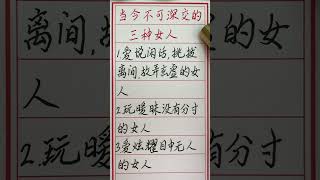 当今不可深交的
三种女人
1.爱说闲话,挑拨
离间,故弄玄虚的女
人
2.玩暧昧没有分寸
的女人
3.爱炫耀目中无人
的女人
离间,
人
2.玩
虚的女
有分寸